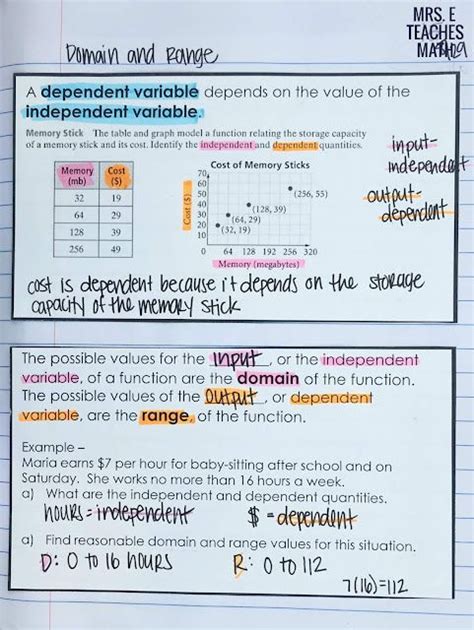 MRS. E
TEACHES
MATH
p9
Domain and Range
A dependent variable depends on the value of the
independent variable.
Memory Stick The table and graph model a function relating the storage capacity
of a memory stick and its cost. Identify the independent and dependent quantities.
input-
independent
output-
dependent
Memory (mb) Cost ($)
32 19
64 29
128 39
256 49
Cost of Memory Sticks
Cost ($)
70
60
50
40
30
20
10
0 64 128 192 256 320
(256, 55)
(128, 39)
(64, 29)
(32, 19)
Memory (megabytes)
cost is dependent because it depends on the storage
capacity of the memory stick
The possible values for the input, or the independent
variable, of a function are the domain of the function.
The possible values of the output, or dependent
variable, are the range, of the function.
Example –
Maria earns $7 per hour for baby-sitting after school and on
Saturday. She works no more than 16 hours a week.
a) What are the independent and dependent quantities.
hours = independent $ = dependent
a) Find reasonable domain and range values for this situation.
D: 0 to 16 hours R: 0 to 112
7(16)=112